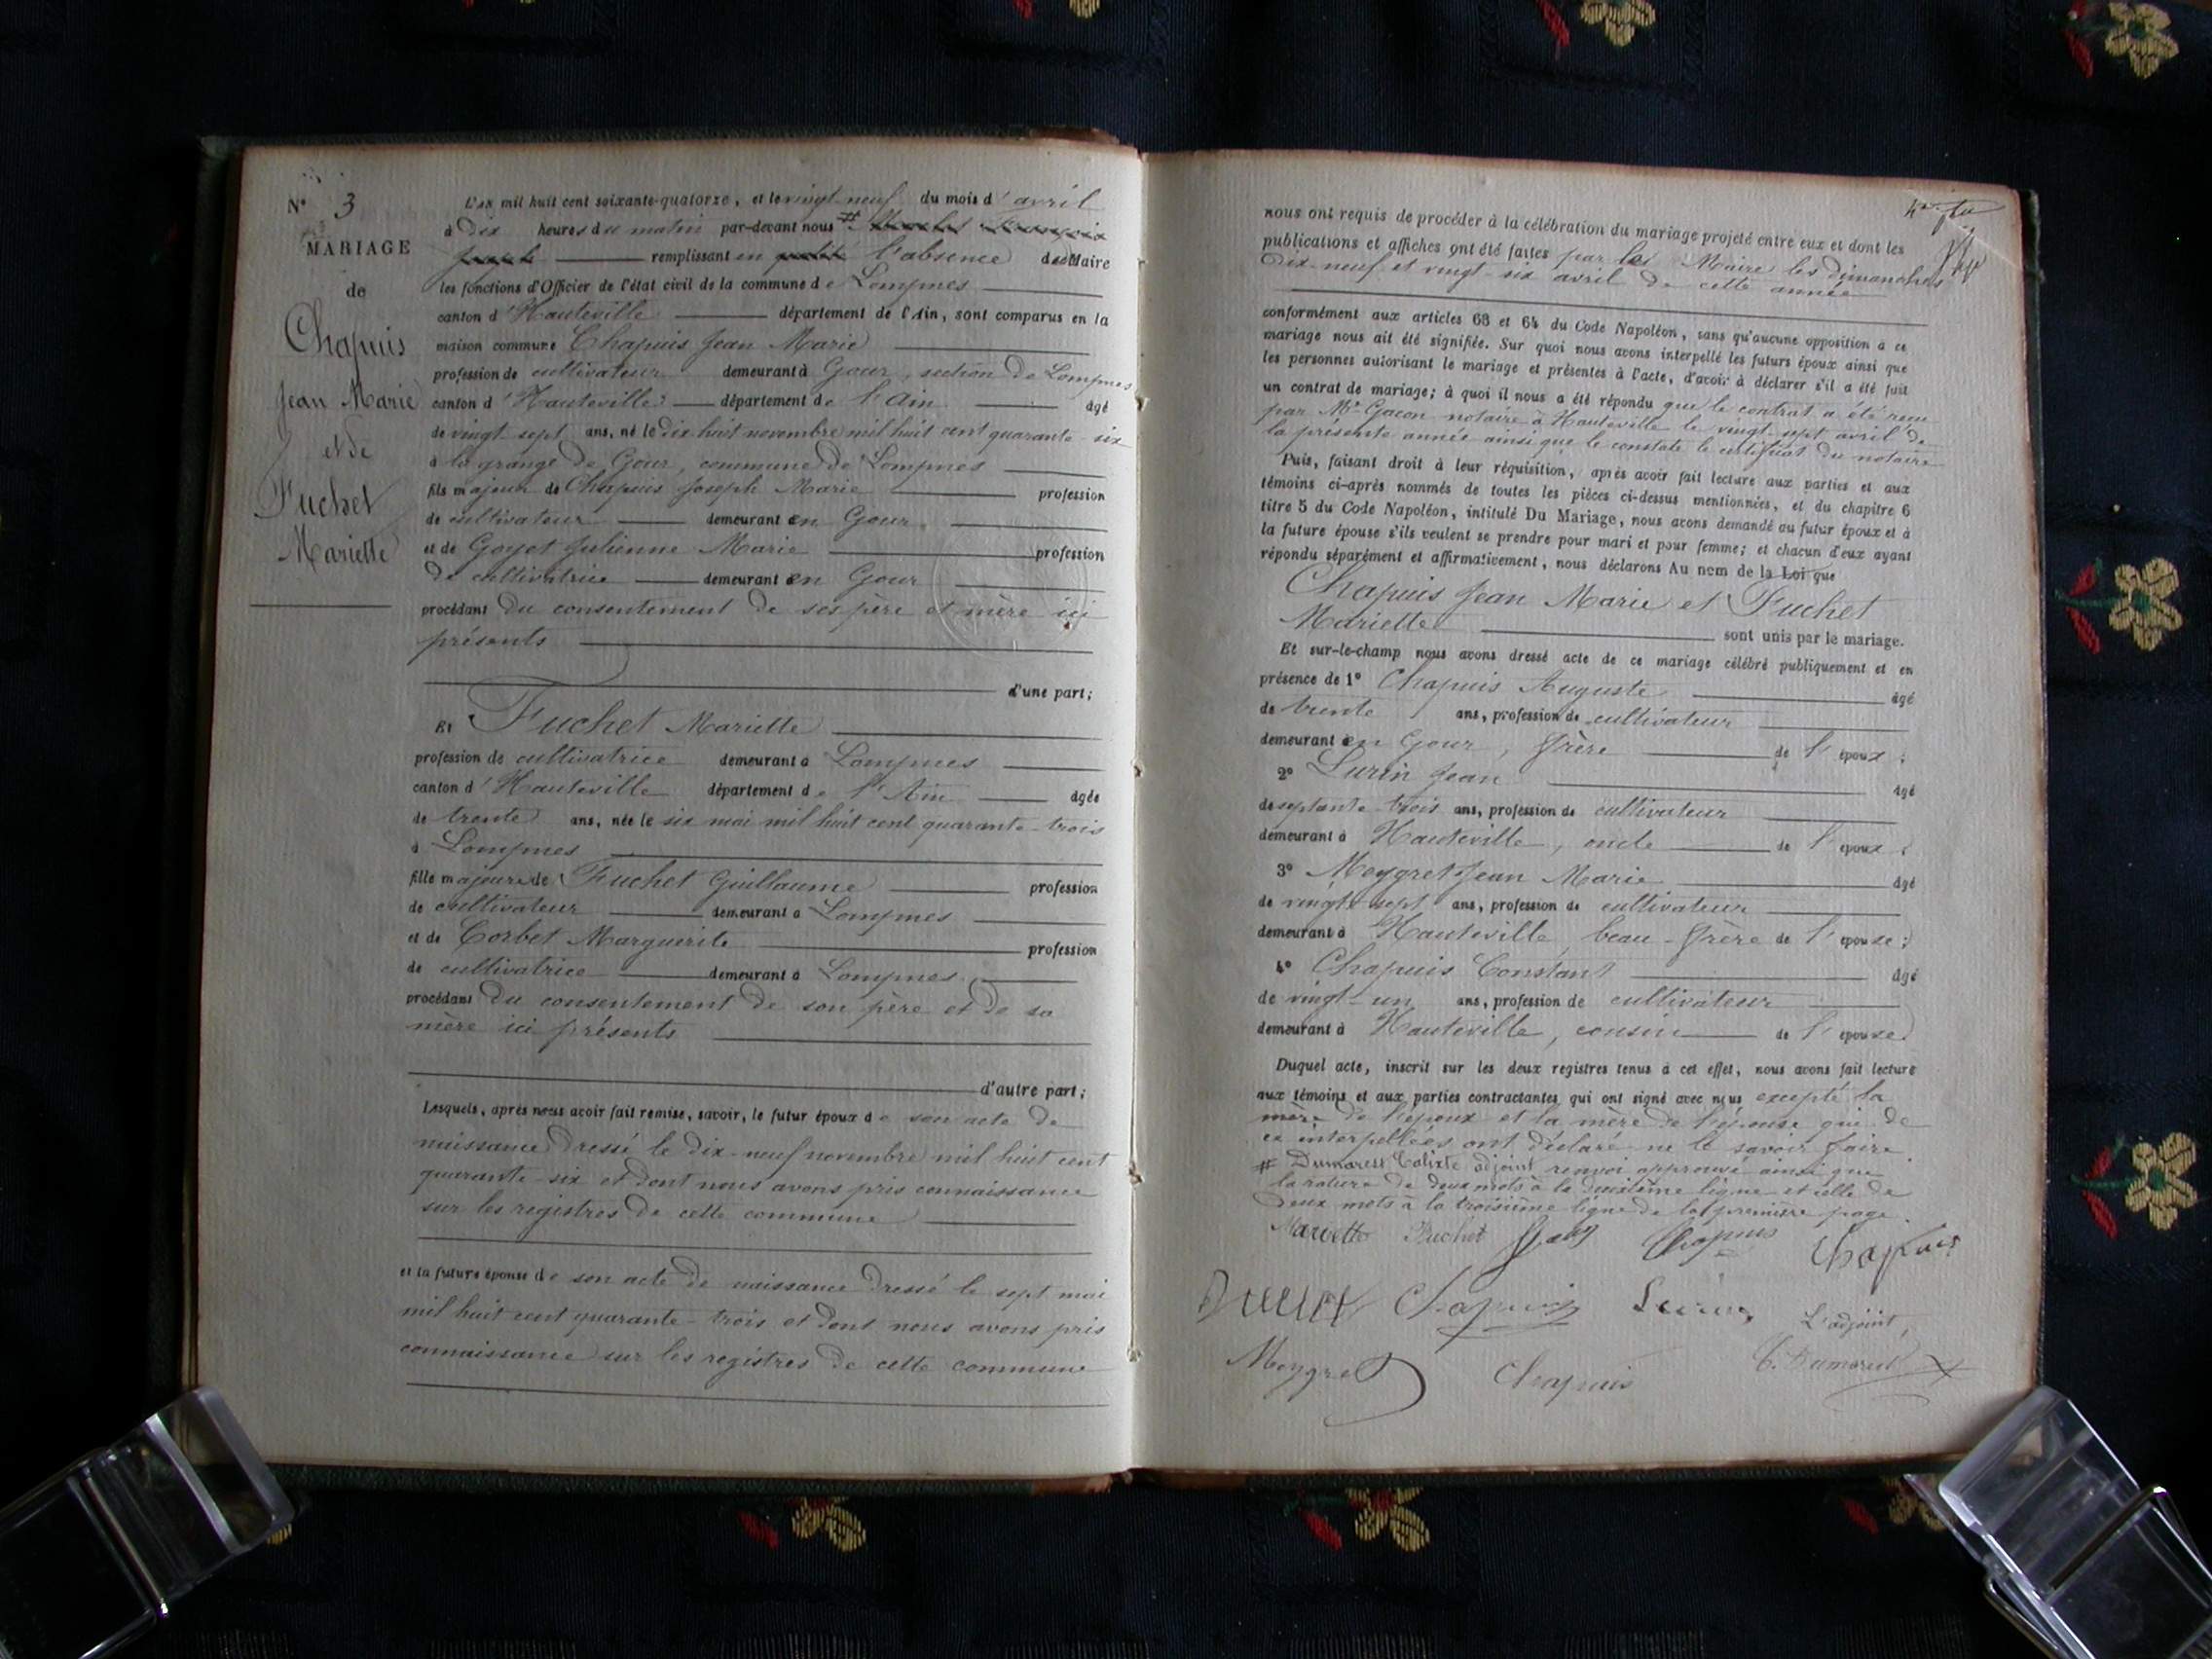 N° 3
MARIAGE
de
Chapuis
Jean Marie
et de
Fuchet
Mariette
L'an mil huit cent soixante-quatorze, et le vingt-neuf du mois d'avril
à dix heures du matin par-devant nous #
remplissant en qualité l'absence du Maire
les fonctions d'Officier de l'état civil de la commune de Lompnes
canton d'Hauteville département de l'Ain, sont comparus en la
maison commune Chapuis Jean Marie
profession de cultivateur demeurant à Gour, section de Lompnes
canton d'Hauteville département de l'Ain âgé
de vingt-sept ans, né le dix-huit novembre mil huit cent quarante-six
à la grange de Gour, commune de Lompnes
fils majeur de Chapuis Joseph Marie profession
de cultivateur demeurant en Gour
et de Goyet Julienne Marie profession
de cultivatrice demeurant en Gour
procédant du consentement de ses père et mère ici
présents
d'une part;
Et Fuchet Mariette
profession de cultivatrice demeurant à Lompnes
canton d'Hauteville département de l'Ain âgée
de trente ans, née le six mai mil huit cent quarante-trois
à Lompnes
fille majeure de Fuchet Guillaume profession
de cultivateur demeurant à Lompnes
et de Corbet Marguerite profession
de cultivatrice demeurant à Lompnes
procédant du consentement de son père et de sa
mère ici présents
d'autre part;
Lesquels, après nous avoir fait remise, savoir, le futur époux de son acte de
naissance dressé le dix-neuf novembre mil huit cent
quarante-six et dont nous avons pris connaissance
sur les registres de cette commune
et la future épouse de son acte de naissance dressé le sept mai
mil huit cent quarante-trois et dont nous avons pris
connaissance sur les registres de cette commune
nous ont requis de procéder à la célébration du mariage projeté entre eux et dont les
publications et affiches ont été faites par le Maire les dimanches
dix-neuf et vingt-six avril de cette année
conformément aux articles 63 et 64 du Code Napoléon, sans qu'aucune opposition à ce
mariage nous ait été signifiée. Sur quoi nous avons interpellé les futurs époux ainsi que
les personnes autorisant le mariage et présentes à l'acte, d'avoir à déclarer s'il a été fait
un contrat de mariage; à quoi il nous a été répondu que le contrat a été reçu
par Me Gacon notaire à Hauteville le vingt-sept avril de
la présente année ainsi que le constate le certificat du notaire
Puis, faisant droit à leur réquisition, après avoir fait lecture aux parties et aux
témoins ci-après nommés de toutes les pièces ci-dessus mentionnées, et du chapitre 6
titre 5 du Code Napoléon, intitulé Du Mariage, nous avons demandé au futur époux et à
la future épouse s'ils veulent se prendre pour mari et pour femme; et chacun d'eux ayant
répondu séparément et affirmativement, nous déclarons Au nom de la Loi que
Chapuis Jean Marie et Fuchet
Mariette sont unis par le mariage.
Et sur-le-champ nous avons dressé acte de ce mariage célébré publiquement et en
présence de 1° Chapuis Auguste âgé
de trente ans, profession de cultivateur
demeurant en Gour, frère de l'époux;
2° Lurin Jean âgé
de septante-trois ans, profession de cultivateur
demeurant à Hauteville, oncle de l'époux;
3° Meygret Jean Marie âgé
de vingt-sept ans, profession de cultivateur
demeurant à Hauteville, beau-frère de l'épouse;
4° Chapuis Constant âgé
de vingt-un ans, profession de cultivateur
demeurant à Hauteville, cousin de l'épouse
Duquel acte, inscrit sur les deux registres tenus à cet effet, nous avons fait lecture
aux témoins et aux parties contractantes qui ont signé avec nous excepté la
mère de l'époux et la mère de l'épouse qui de
ce interpellées ont déclaré ne le savoir faire
# Dumarest Calixte adjoint renvoi approuvé ainsi que
la rature de deux mots à la deuxième ligne et celle de
deux mots à la troisième ligne de la première page.
Mariette Fuchet Chapuis Chapuis
Chapuis Lurin L'adjoint,
Meygret Chapuis C. Dumarest